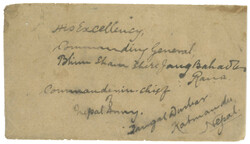 His Excellency,
Commanding General
Bhim Sham Shere Jang Bahadur
Rana
Commander-in-chief
of
Nepal Army.
Durbar
Katmandu
Nepal